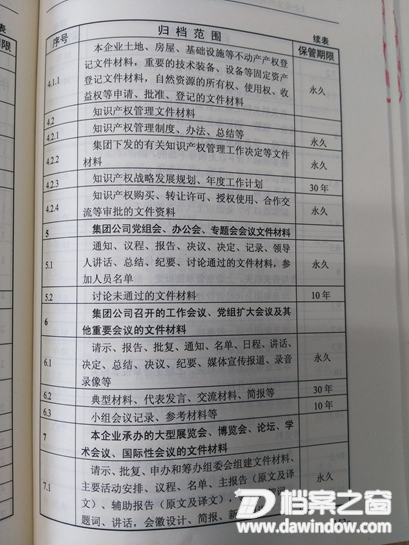 续表
序号 归档范围 保管期限
本企业土地、房屋、基础设施等不动产产权登
记文件材料，重要的技术装备、设备等固定资产
4.1.1 登记文件材料，自然资源的所有权、使用权、收 永久
益权等申请、批准、登记的文件材料
4.2 知识产权管理文件材料
4.2.1 知识产权管理制度、办法、总结等 永久
集团下发的有关知识产权管理工作决定等文件
4.2.2 材料 永久
4.2.3 知识产权战略发展规划、年度工作计划 30年
知识产权购买、转让许可、授权使用、合作交
4.2.4 流等审批的文件资料 永久
5 集团公司党组会、办公会、专题会会议文件材料
通知、议程、报告、决议、决定、记录、领导
5.1 人讲话、总结、纪要、讨论通过的文件材料，参 永久
加人员名单
5.2 讨论未通过的文件材料 10年
集团公司召开的工作会议、党组扩大会议及其
6 他重要会议的文件材料
请示、报告、批复、通知、名单、日程、讲话、
6.1 决定、总结、决议、纪要、媒体宣传报道、录音 永久
录像等
6.2 典型材料、代表发言、交流材料、简报等 30年
6.3 小组会议记录、参考材料等 10年
7 本企业承办的大型展览会、博览会、论坛、学
术会议、国际性会议的文件材料
请示、批复、申办和筹办组委会组建文件材料、
7.1 主要活动安排、议程、名单、主报告（原文及译 永久
文）、辅助报告（原文及译文）、
题词、讲话，会徽设计、简报、新
档案之窗
www.dawindow.com